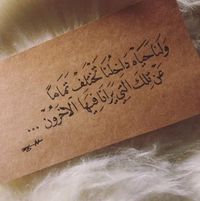 وَلَنَا حَيَاة دَاخِلُنَا تَخْتَلِف تَمَامَاً
عَنْ تِلكَ التِي يَرَانَا فِيهَا الآخَرُونْ ...